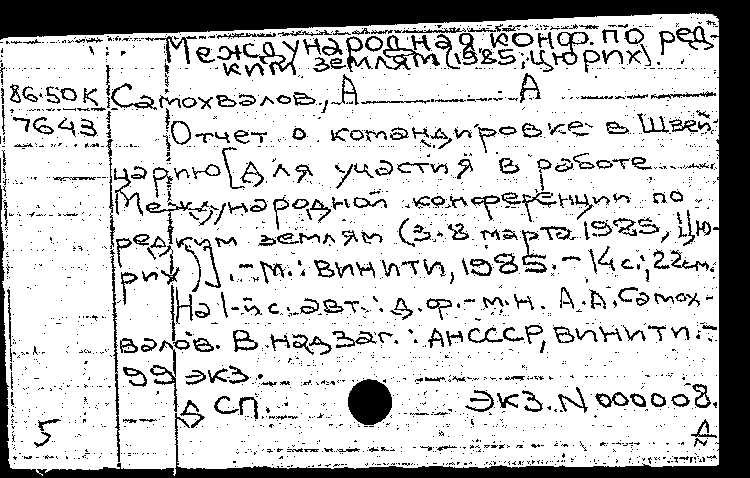 Международная конф. по ред-
ким землям (1985; Цюрих).
86-50К Самохвалов, А А
7643 Отчет о командировке в Швей
царию [для участия в работе
Международной конференции по
редким землям (3-8 марта 1985, Цю-
рих)]. - М.: ВИНИТИ, 1985. - 14 с.; 22 см.
На 1-й с. авт.: д. ф.-м. н. А. А. Самох-
валов. В надзаг.: АН СССР, ВИНИТИ. -
99 экз.
Д СП. ЭКЗ. N 000008.
5 А